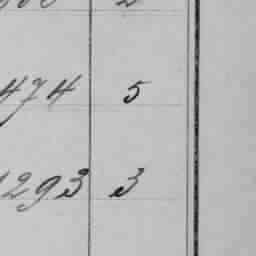 474 5
1293 3